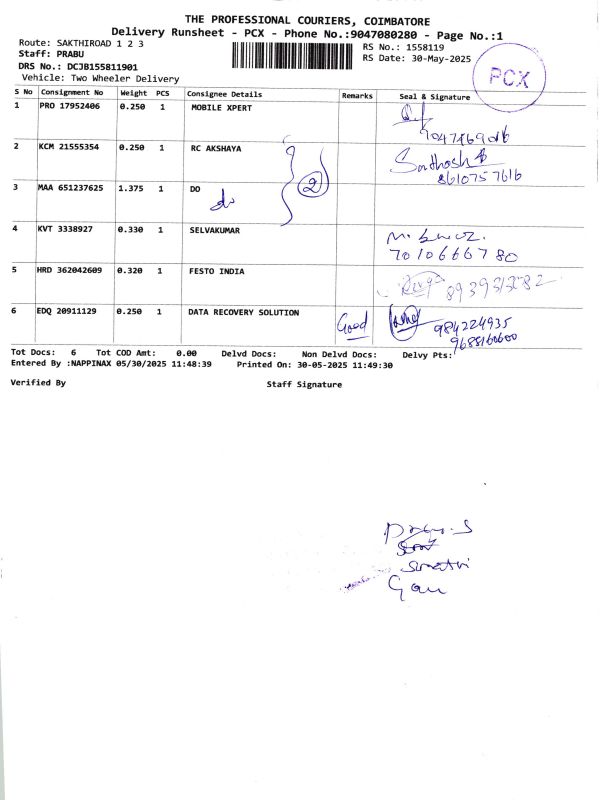 THE PROFESSIONAL COURIERS, COIMBATORE
Delivery Runsheet - PCX - Phone No.:9047080280 - Page No.:1
Route: SAKTHIROAD 1 2 3
Staff: PRABU
DRS No.: DCJB155811901
Vehicle: Two Wheeler Delivery
RS No.: 1558119
RS Date: 30-May-2025
PCX
S No Consignment No Weight PCS Consignee Details Remarks Seal & Signature
1 PRO 17952406 0.250 1 MOBILE XPERT
2 KCM 21555354 0.250 1 RC AKSHAYA Santhosh
8610757616
3 MAA 651237625 1.375 1 DO
do 2
4 KVT 3338927 0.330 1 SELVAKUMAR
7010666780
5 HRD 362042609 0.320 1 FESTO INDIA
6 EDQ 20911129 0.250 1 DATA RECOVERY SOLUTION Good
984224935
9688160600
Tot Docs: 6 Tot COD Amt: 0.00 Delvd Docs: Non Delvd Docs: Delvy Pts:
Entered By :NAPPINAX 05/30/2025 11:48:39 Printed On: 30-05-2025 11:49:30
Verified By Staff Signature